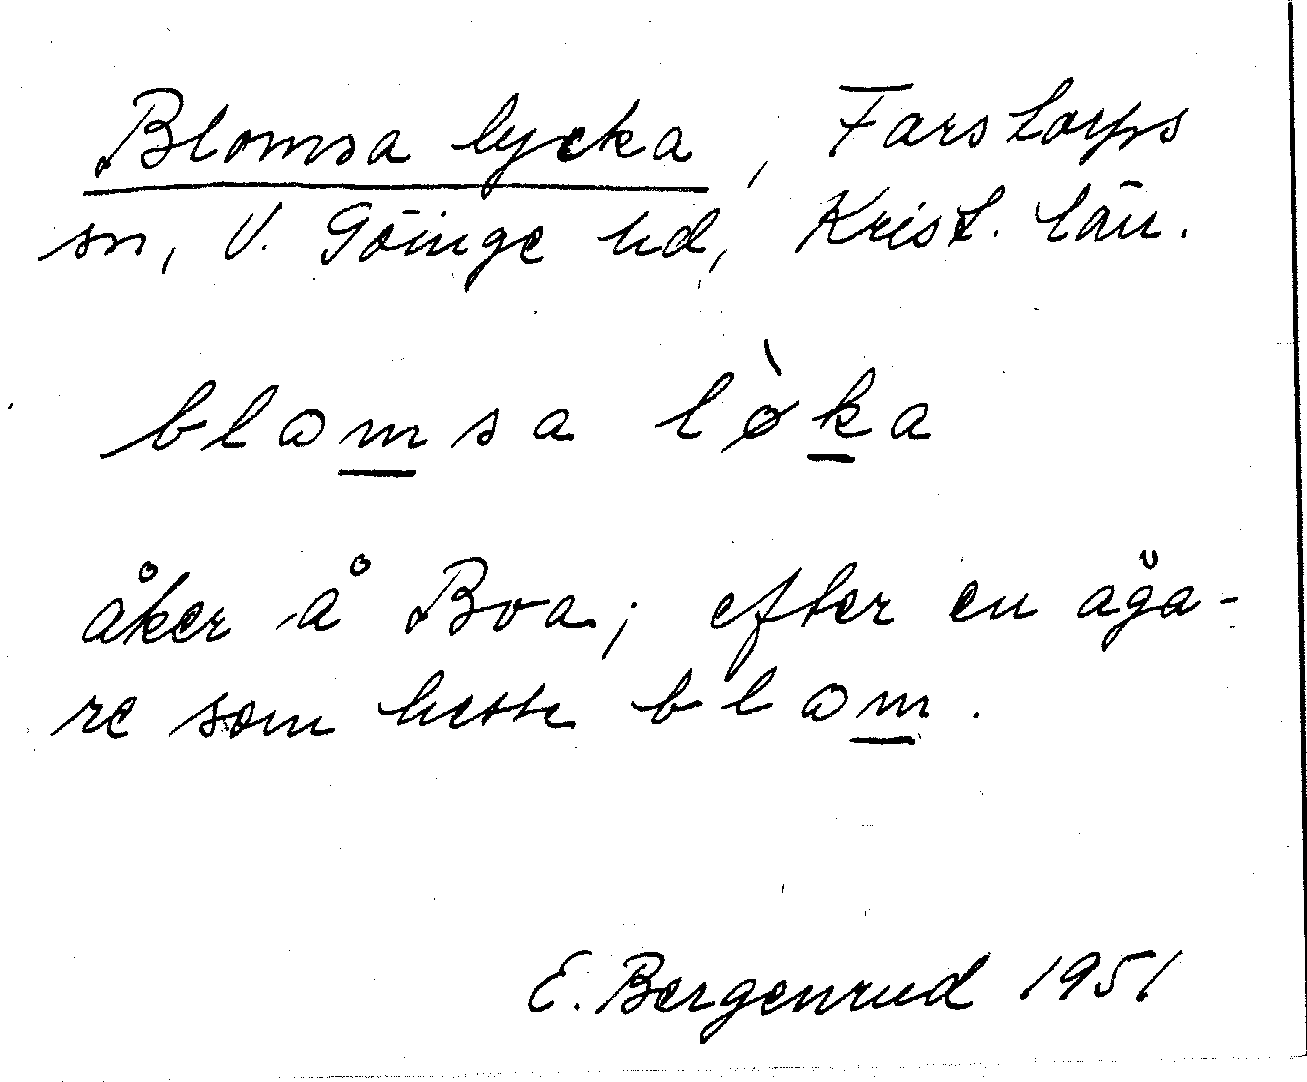 Blomsa lycka, Farstorps
sn, V. Göinge hd, Krist. län.
blomsa lø̀ka
åker å Boa; efter en äga-
re som hette blom.
E. Bergenrud 1951